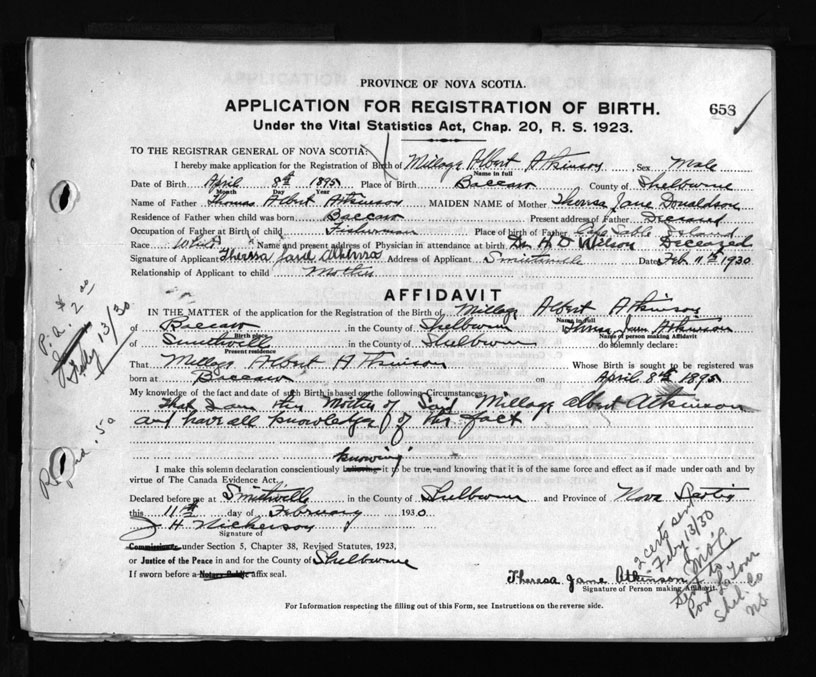 PROVINCE OF NOVA SCOTIA.
APPLICATION FOR REGISTRATION OF BIRTH.
658
Under the Vital Statistics Act, Chap. 20, R. S. 1923.
TO THE REGISTRAR GENERAL OF NOVA SCOTIA:
I hereby make application for the Registration of Birth of Millage Albert Atkinson Sex Male
Name in full
Date of Birth April 8th 1895 Place of Birth Baccaro County of Shelburne
Month Day Year
Name of Father Thomas Albert Atkinson MAIDEN NAME of Mother Theresa Jane Donaldson
Residence of Father when child was born Baccaro Present address of Father Deceased
Occupation of Father at Birth of child Fisherman Place of birth of Father Cape Sable Island
Race White Name and present address of Physician in attendance at birth Dr. H D Wilson Deceazed
Signature of Applicant Theressa Jane Atkinson Address of Applicant Smithville Date Feb 11th 1930
Relationship of Applicant to child Mother
AFFIDAVIT
IN THE MATTER of the application for the Registration of the Birth of Millage Albert Atkinson
Name in full
of Baccaro in the County of Shelburne Thresa Jane Atkinson
Birth place
Name of person making Affidavit
of Smithville in the County of Shelburne do solemnly declare:
Present residence
That Millage Albert Atkinson Whose Birth is sought to be registered was
born at Baccaro on April 8th 1895
My knowledge of the fact and date of such Birth is based on the following Circumstances
That I am the Mother of Said Millage Albert Atkinson
and have all knowledge of the fact
knowing
I make this solemn declaration conscientiously believing it to be true, and knowing that it is of the same force and effect as if made under oath and by
virtue of The Canada Evidence Act.
Declared before me at Smithville in the County of Shelburne and Province of Nova Scotia
this 11th day of February 1930
J. H. Nickerson
Signature of
Commissioner under Section 5, Chapter 38, Revised Statutes, 1923,
or Justice of the Peace in and for the County of Shelburne
If sworn before a Notary Public affix seal.
Theresa Jane Atkinson
Signature of Person making Affidavit.
For Information respecting the filling out of this Form, see Instructions on the reverse side.
Feby 13/30
2 certs sent
Feby 13/30
Shel. Co
NS